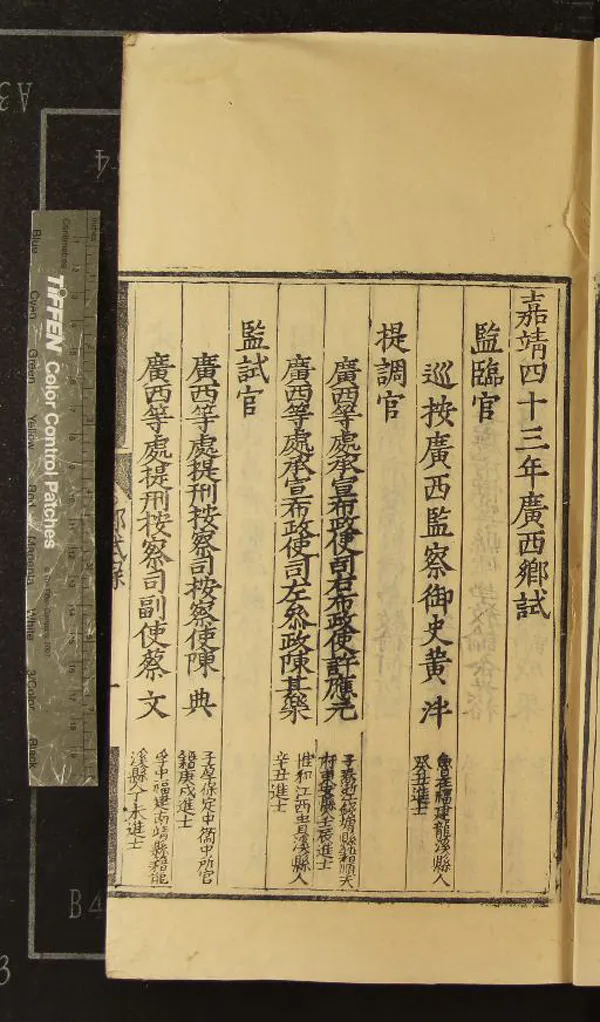 嘉靖四十三年廣西鄉試
監臨官
巡按廣西監察御史黃泮
魯在福建龍溪縣人
癸丑進士
提調官
廣西等處承宣布政使司右布政使許應元
子春浙江錢塘縣籍順天
府東安縣壬辰進士
廣西等處承宣布政使司左參政陳其樂
惟和江西貴溪縣人
辛丑進士
監試官
廣西等處提刑按察司按察使陳典
保定中衞中所官
籍庚戌進士
廣西等處提刑按察司副使蔡文
孚中福建南靖縣籍龍
溪縣人丁未進士
鄉試錄
一
TIFFEN Color Control Patches
Centimetres
Inches
Blue
Cyan
Green
Yellow
Red
Magenta
White
3/Color
Black
A3
B4